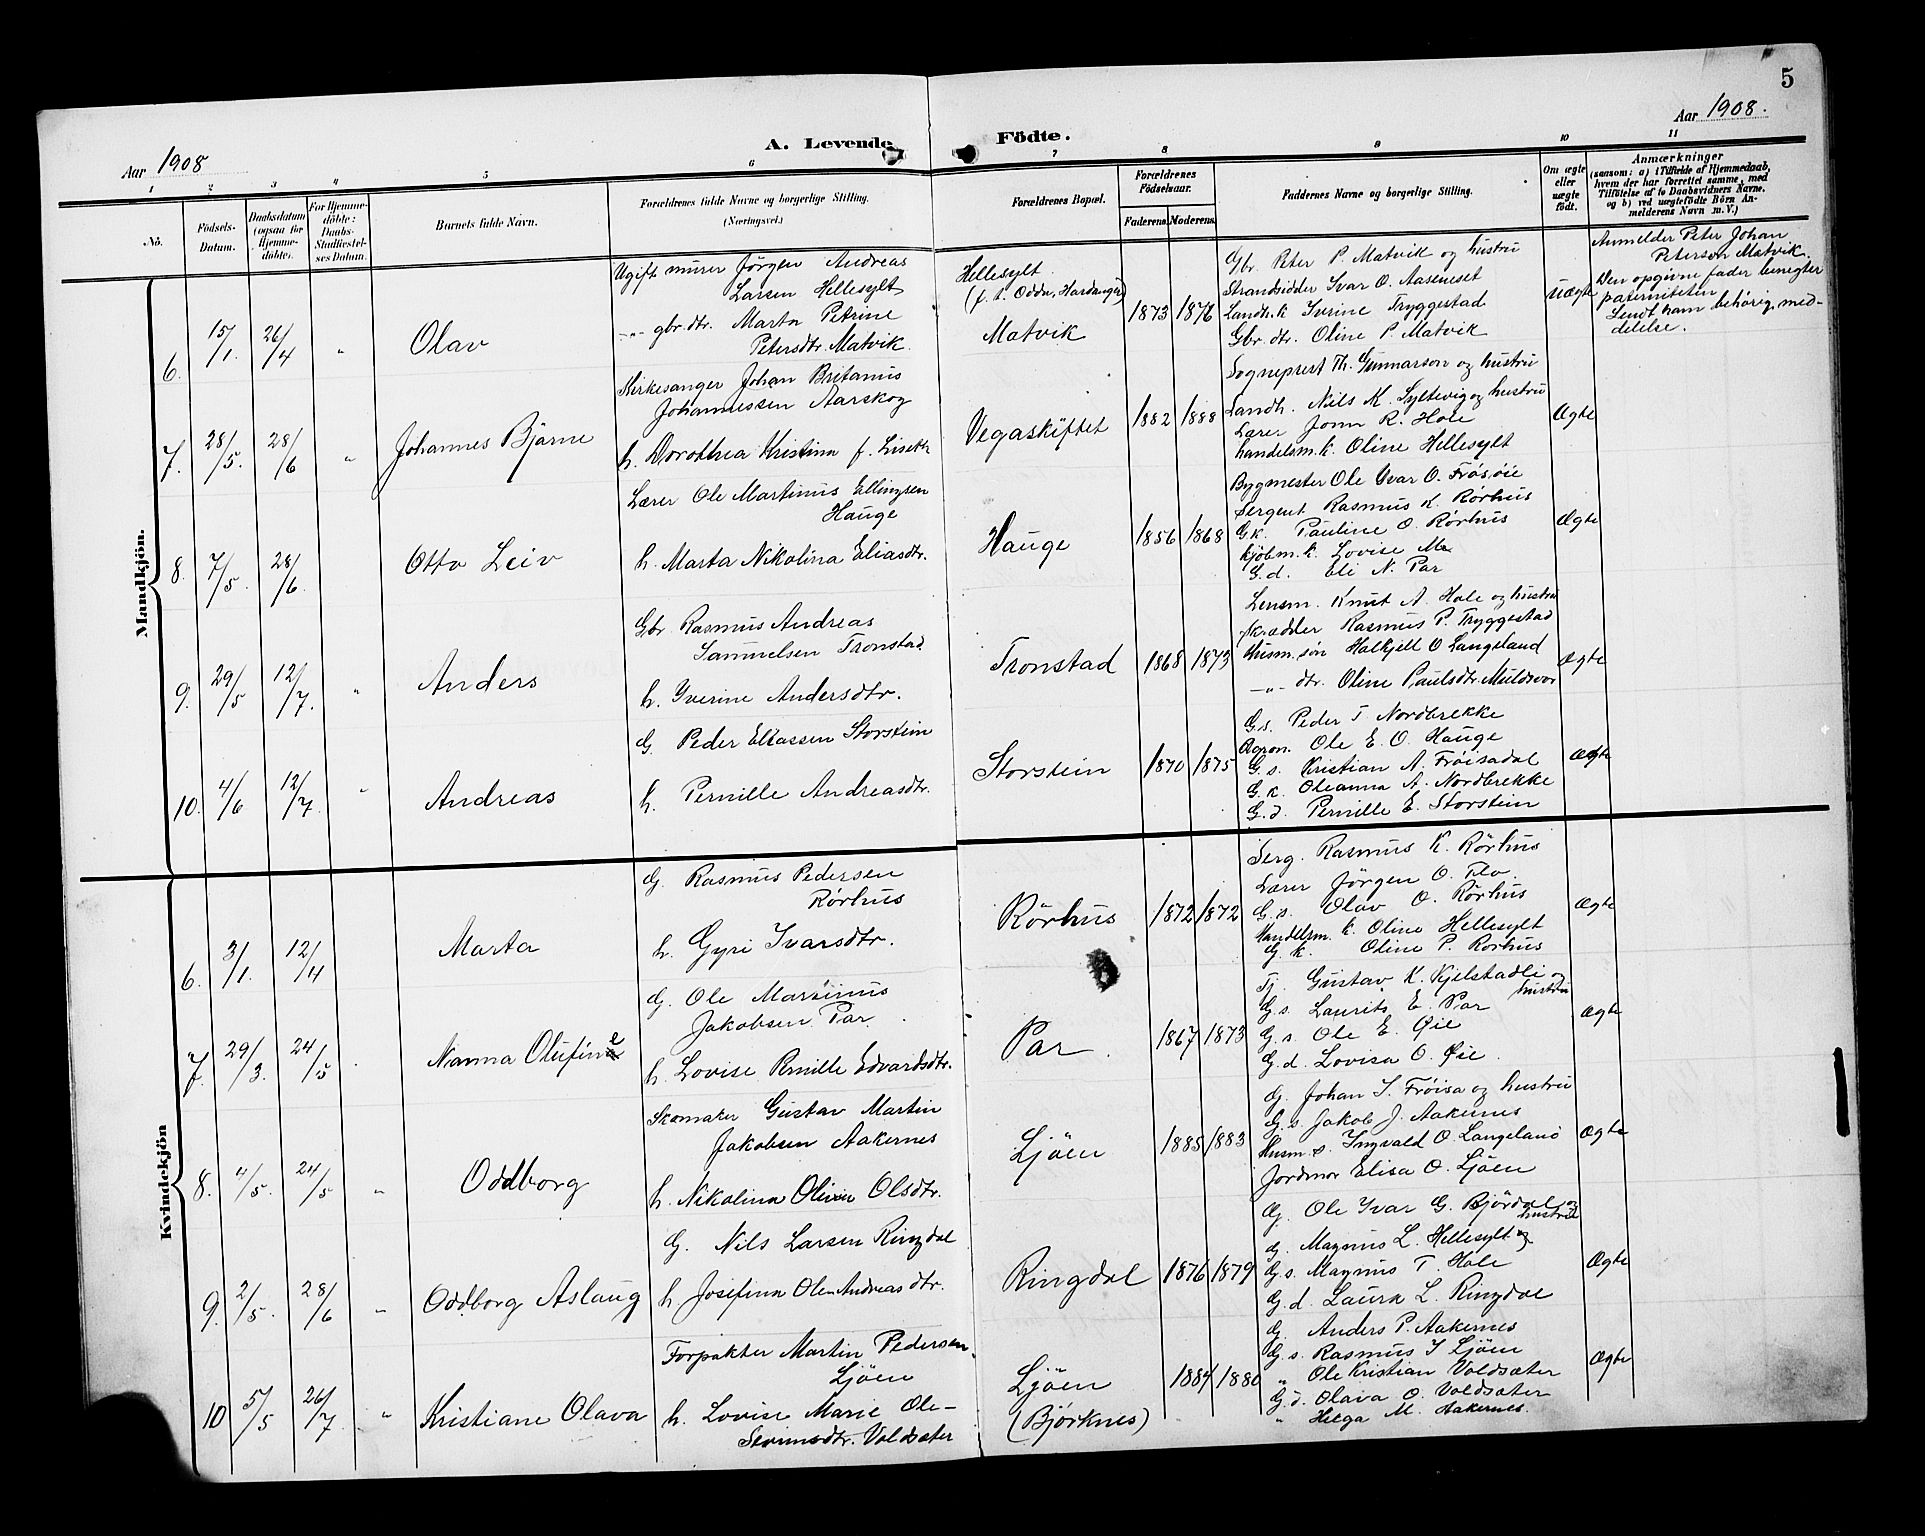 5
Aar 1908
A. Levende Födte.
Aar 1908.
1 2 3 4 5 6 7 8 9 10 11
No.
Födsels-Datum.
Daabsdatum (ogsaa for Hjemme-döbte).
For Hjemme-döbte: Daabs-Stadfæstel-ses Datum.
Barnets fulde Navn.
Forældrenes fulde Navne og borgerlige Stilling. (Næringsvei.)
Forældrenes Bopæl.
Forældrenes Födselsaar.
Faderens. Moderens.
Faddernes Navne og borgerlige Stilling.
Om ægte eller uægte födt.
Anmærkninger
(saasom: a) i Tilfælde af Hjemmedaab,
hvem der har forrettet samme, med
Tilföielse af to Daabsvidners Navne,
og b) ved uægtefödte Börn An-
melderens Navn m. V.)
Mandkjön.
6. 15/1. 26/4 " Olav
Ugift murer Jörgen Andreas
Larsen Hellesylt
-"- gbr.dtr. Marta Petrine
Petersdtr. Matvik.
Hellesylt
(f. t. Odda, Hardanger)
Matvik
1873 1876
Gbr. Peter P. Matvik og hustru
Strandsidder Ivar O. Aaseneset
Landh.k Iverine Tryggestad
Gbr. dtr. Oline P. Matvik
uægte
Anmelder Peter Johan
Peterson Matvik.
Den opgivne fader benegter
paterniteten
Sendt ham behörig med-
delelse.
7. 28/5. 28/6 " Johannes Bjarne
Kirkesanger Johan Britanus
Johannessen Aarskog
h. Dorothea Kristina f. Liseth
Vegaskiftet
1882 1888
Sogneprest Th. Gunnarson og hustru
Landh. Nils K. Syltevig og hustru
Lærer Jonn R. Hole
handelsm.k. Oline Hellesylt
Ægte
8. 7/5. 28/6. Otto Leiv
Lærer Ole Martinus Ellingsen
Hauge
h. Marta Nikolina Eliasdtr.
Hauge
1856 1868
Bygmester Ole Ivar O. Frösöie
Sergent Rasmus K. Rörhus
G.k. Pauline O. Rörhus
kjöbm. k. Lovise Me
G.d. Eli N. Par
Ægte
9. 29/5 12/7. " Anders
Gbr. Rasmus Andreas
Samuelsen Tronstad
h. Iverine Andersdtr.
Tronstad
1868 1873
Lensm. Knut A. Hole og hustru
skrædder Rasmus P. Tryggestad
Husm.søn Halkjell O Langeland
-"- dtr. Oline Paulsdtr. Muldsvor
Ægte
10. 4/6 12/7. " Andreas
G. Peder Eliassen Storstein
h. Pernille Andreasdtr.
Storstein
1870 1875
G.s. Peder T Nordbrekke
Agron. Ole E. O. Hauge
G.s. Kristian A. Fröisadal
G.k. Oleanna A. Nordbrekke
G.d. Pernille E. Storstein
Ægte
Kvindekjön
6. 3/1. 12/4 Marta
G. Rasmus Pedersen
Rörhus
h. Gyri Ivarsdtr.
Rörhus
1872 1872
Serg. Rasmus K. Rörhus
Lærer Jörgen O. Flo.
G.s. Olav O. Rörhus
Handelsm. k. Oline Hellesylt
G.k. Oline P. Rorhus
Ægte
7. 29/3. 24/5 Nanna Olufine
G. Ole Martinus
Jakobsen Par.
h. Lovise Pernille Edvardsdtr.
Par.
1867 1873
Tj. Gustav K. Kjelstadli og
hustru
G.s. Laurits E. Par
G.s. Ole E. Øie
G.d. Lovisa O. Øie.
Ægte
8. 4/5. 24/5 " Oddborg
Skomaker Gustav Martin
Jakobsen Aakernes
h. Nikolina Olivia Olsdtr.
Ljöen
1885 1883
G. Johan S. Fröisa og hustru
G.s. Jakob J. Aakernes
Husm.s. Ingvald O. Langeland
Jordmor Elisa O. Ljöen
Ægte
9. 2/5. 28/6 " Oddborg Aslaug
G. Nils Larsen Ringdal
h. Josefina Ole Andreasdtr.
Ringdal
1876 1879
G. Ole Ivar G. Björdal og
hustru
G. Magnus L. Hellesylt og
G.s. Magnus T. Hole
G.d. Laura L. Ringdal
Ægte
10 5/5 26/7. " Kristiane Olava
Forpakter Martin Pedersen
Ljöen
h. Lovise Marie Ole-
Sevrinsdtr. Voldsæter
Ljöen
(Björknes)
1884 1880
G. Anders P. Aakernes
G.s. Rasmus I Ljöen
" Ole Kristian Voldsæter
G.d. Olava O. Voldsæter
" Helga M. Aakernes.
Ægte